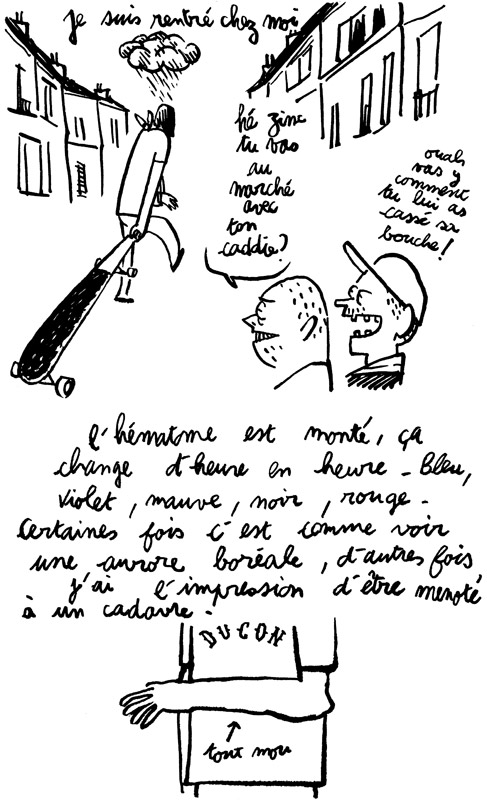 je suis rentré chez moi
hé zinc
tu vas
au
marché
avec
ton
caddie?
ouah
vas y
comment
tu lui as
cassé sa
bouche!
l'hématome est monté, ça
change d'heure en heure - Bleu,
violet, mauve, noir, rouge -
Certaines fois c'est comme voir
une aurore boréale, d'autres fois
j'ai l'impression d'être menoté
à un cadavre.
DUCON
tout mou